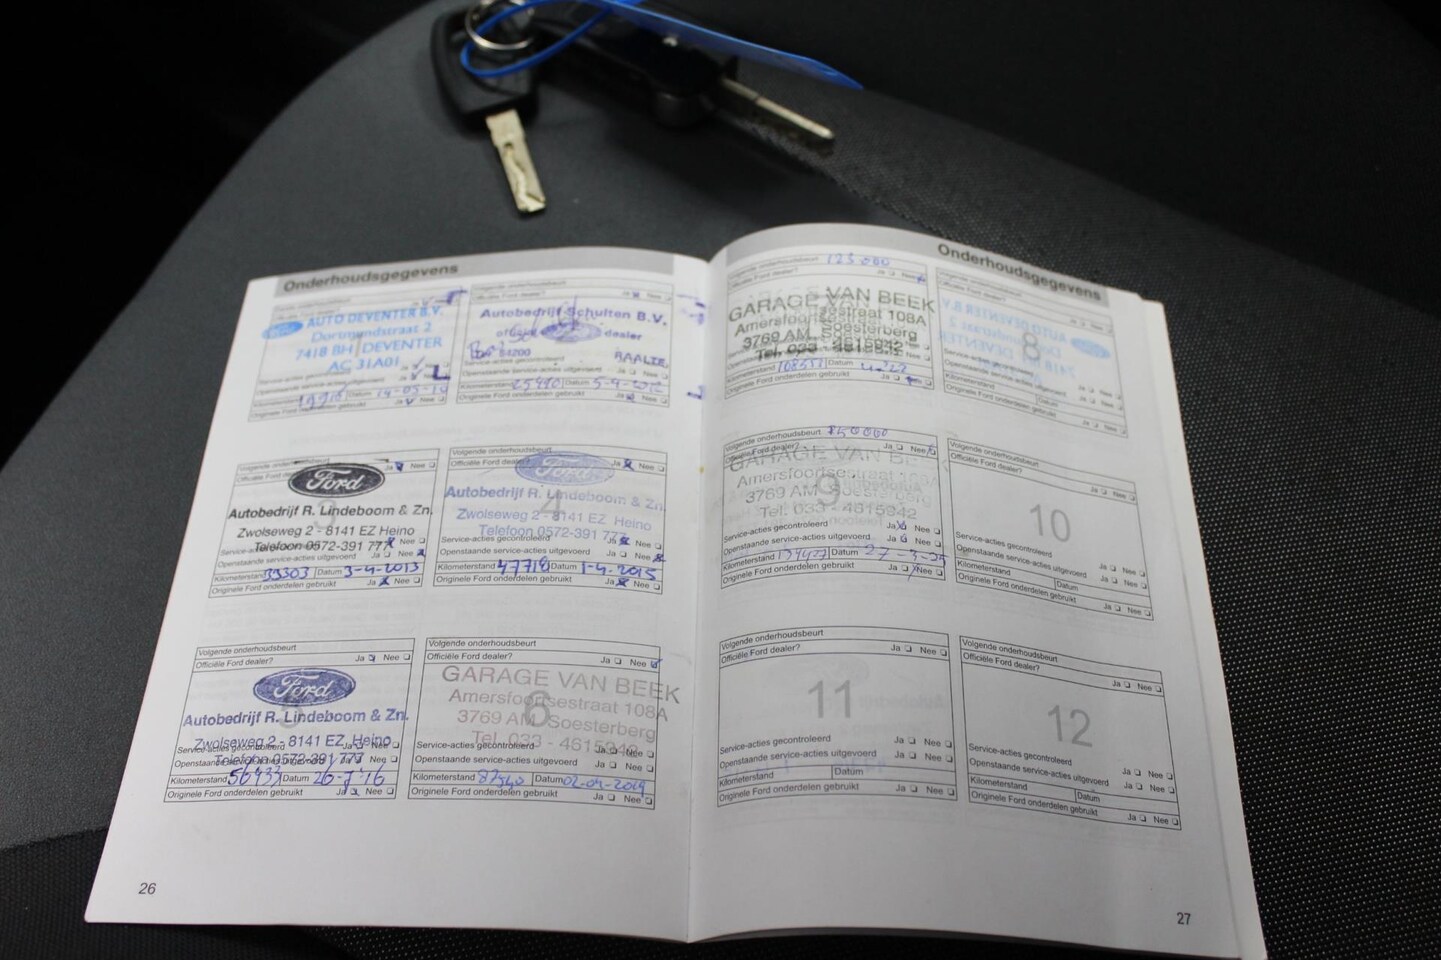 Onderhoudsgegevens
AUTO DEVENTER B.V.
Dortmundstraat 2
7418 BH DEVENTER
AC 31A01
Originele Ford onderdelen gebruikt Ja Nee
Volgende onderhoudsbeurt
Officiële Ford dealer? Ja Nee
Autobedrijf Schulten B.V.
dealer
Service-acties gecontroleerd
Openstaande service-acties uitgevoerd Ja Nee
Kilometerstand Datum 5-4-2012
Originele Ford onderdelen gebruikt Ja Nee
Volgende onderhoudsbeurt Ja Nee
Ford
3
Autobedrijf R. Lindeboom & Zn.
Zwolseweg 2 - 8141 EZ Heino
Telefoon 0572-391 777
Openstaande service-acties uitgevoerd Ja Nee
Kilometerstand 39303 Datum 3-4-2013
Originele Ford onderdelen gebruikt Ja Nee
Volgende onderhoudsbeurt
Officiële Ford dealer? Ja Nee
Ford
4
Autobedrijf R. Lindeboom & Zn.
Zwolseweg 2 - 8141 EZ Heino
Telefoon 0572-391 777
Service-acties gecontroleerd Ja Nee
Openstaande service-acties uitgevoerd Ja Nee
Kilometerstand 47718 Datum 1-4-2015
Originele Ford onderdelen gebruikt Ja Nee
Volgende onderhoudsbeurt
Officiële Ford dealer? Ja Nee
Ford
5
Autobedrijf R. Lindeboom & Zn.
Zwolseweg 2 - 8141 EZ Heino
Service-acties gecontroleerd Ja Nee
Telefoon 0572-391 777
Kilometerstand 56433 Datum 26-7-'16
Originele Ford onderdelen gebruikt Ja Nee
Volgende onderhoudsbeurt
Officiële Ford dealer? Ja Nee
GARAGE VAN BEEK
Amersfoortsestraat 108A
6
3769 AM Soesterberg
Tel. 033 - 4615942
Service-acties gecontroleerd Ja Nee
Openstaande service-acties uitgevoerd Ja Nee
Kilometerstand Datum 02-04-2019
Originele Ford onderdelen gebruikt Ja Nee
26
Onderhoudsgegevens
Volgende onderhoudsbeurt 123000
Officiële Ford dealer? Ja Nee
GARAGE VAN BEEK
Amersfoortsestraat 108A
3769 AM Soesterberg
Tel. 033 - 4615942
Openstaande service-acties uitgevoerd
Kilometerstand Datum
Originele Ford onderdelen gebruikt Ja
Volgende onderhoudsbeurt
Officiële Ford dealer?
Ja Nee
8
Service-acties gecontroleerd
Openstaande service-acties uitgevoerd Ja Nee
Kilometerstand Datum Ja Nee
Originele Ford onderdelen gebruikt Ja Nee
Volgende onderhoudsbeurt
Officiële Ford dealer? Ja Nee
GARAGE VAN BEEK
Amersfoortsestraat 108A
9
3769 AM Soesterberg
Tel. 033 - 4615942
Service-acties gecontroleerd Ja Nee
Openstaande service-acties uitgevoerd Ja Nee
Kilometerstand Datum 27-3-25
Originele Ford onderdelen gebruikt Ja Nee
Volgende onderhoudsbeurt
Officiële Ford dealer?
Ja Nee
10
Service-acties gecontroleerd
Openstaande service-acties uitgevoerd Ja Nee
Kilometerstand Datum Ja Nee
Originele Ford onderdelen gebruikt Ja Nee
Volgende onderhoudsbeurt
Officiële Ford dealer?
Ja Nee
11
Service-acties gecontroleerd Ja Nee
Openstaande service-acties uitgevoerd Ja Nee
Kilometerstand Datum
Originele Ford onderdelen gebruikt Ja Nee
Volgende onderhoudsbeurt
Officiële Ford dealer?
Ja Nee
12
Service-acties gecontroleerd Ja Nee
Openstaande service-acties uitgevoerd Ja Nee
Kilometerstand Datum
Originele Ford onderdelen gebruikt Ja Nee
27